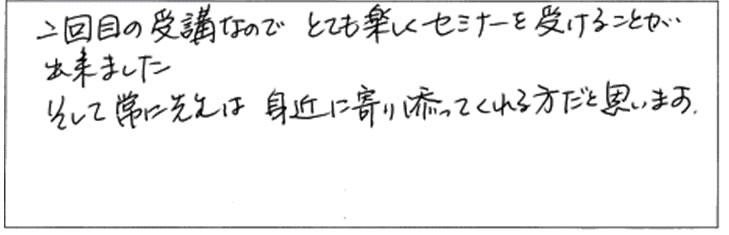 二回目の受講なので とても楽しくセミナーを受けることが
出来ました
そして常に先生は 身近に寄り添ってくれる方だと思います.